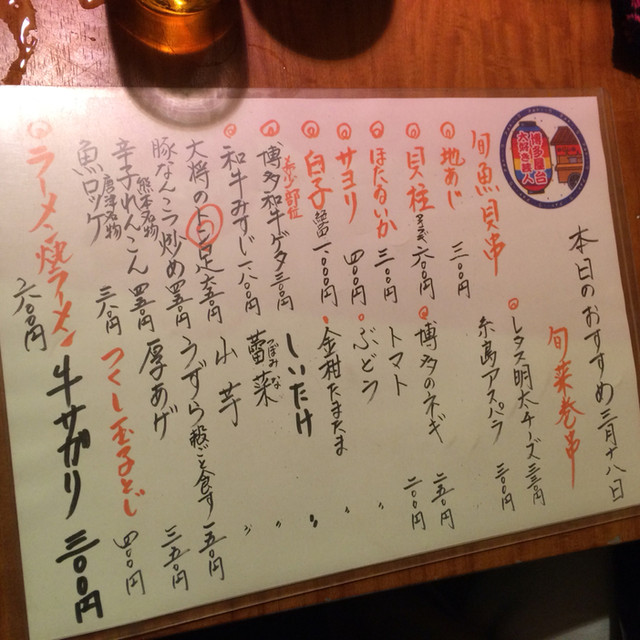 本日のおすすめ三月十八日
旬魚貝串
地あじ 三〇〇円
貝柱 六〇〇円
ほたるいか 三〇〇円
サヨリ 四〇〇円
白子 一〇〇〇円
博多和牛ゲタ 三〇〇円
和牛みすじ 一八〇〇円
大将のトン足 六五〇円
豚なんこつ炒め 四五〇円
熊本名物
辛子れんこん 四五〇円
唐津名物
魚ロッケ 三八〇円
ラーメン 焼ラーメン 六〇〇円
旬菜巻串
レタス明太チーズ 三三〇円
糸島アスパラ 三〇〇円
博多のネギ 二五〇円
トマト 二〇〇円
ぶどう 〃
金柑たまたま 〃
しいたけ 〃
蕾菜 〃
つぼみな
山芋 〃
うずら殻ごと食す 一五〇円
厚あげ 三五〇円
つくし玉子とじ 四〇〇円
牛サガリ 三〇〇円